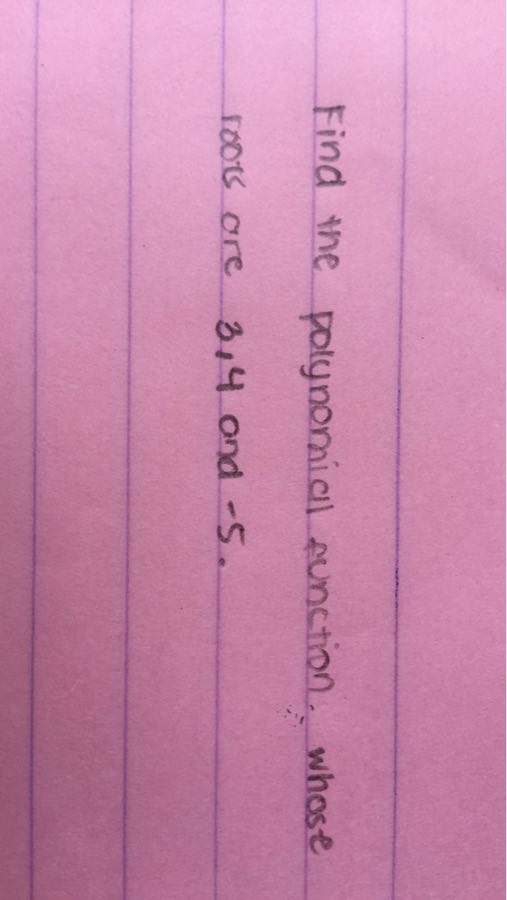 Find the polynomial function whose
roots are 3,4 and -5.